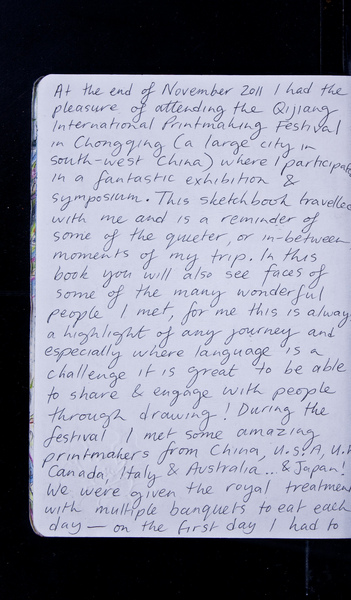 At the end of November 2011 I had the
pleasure of attending the Qijiang
International Printmaking Festival
in Chongqing (a large city in
south-west China) where I participat
in a fantastic exhibition &
symposium. This sketchbook travelled
with me and is a reminder of
some of the quieter, or in-between
moments of my trip. In this
book you will also see faces of
some of the many wonderful
people I met, for me this is always
a highlight of any journey and
especially where language is a
challenge it is great to be able
to share & engage with people
through drawing! During the
festival I met some amazing
printmakers from China, U.S.A, U.K
Canada, Italy & Australia... & Japan!
We were given the royal treatment
with multiple banquets to eat each
day — on the first day I had to